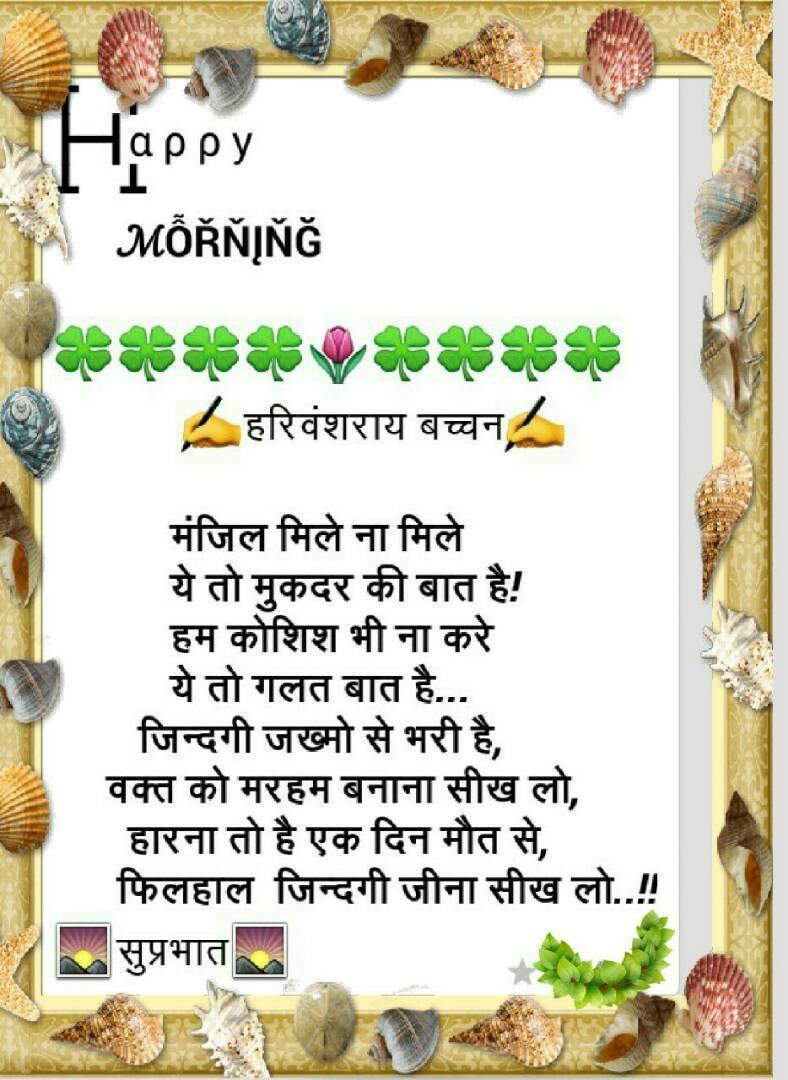 Happy
MỖŘŇĮŇĞ
🍀🍀🍀🍀🌷🍀🍀🍀🍀
✍हरिवंशराय बच्चन✍
मंजिल मिले ना मिले
ये तो मुकदर की बात है!
हम कोशिश भी ना करे
ये तो गलत बात है...
जिन्दगी जख्मो से भरी है,
वक्त को मरहम बनाना सीख लो,
हारना तो है एक दिन मौत से,
फिलहाल जिन्दगी जीना सीख लो..!!
🌄सुप्रभात🌄